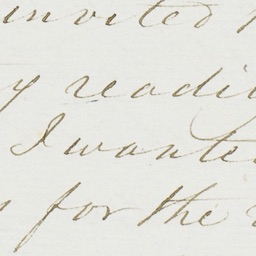 invited
y readi
I wante
for the